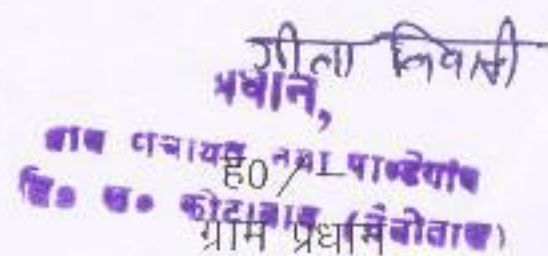 गीता तिवारी
प्रधान,
ग्राम पंचायत नया पाण्डेगांव
ह0/-
वि० ख० कोटाबाग (नैनीताल)
ग्राम प्रधान